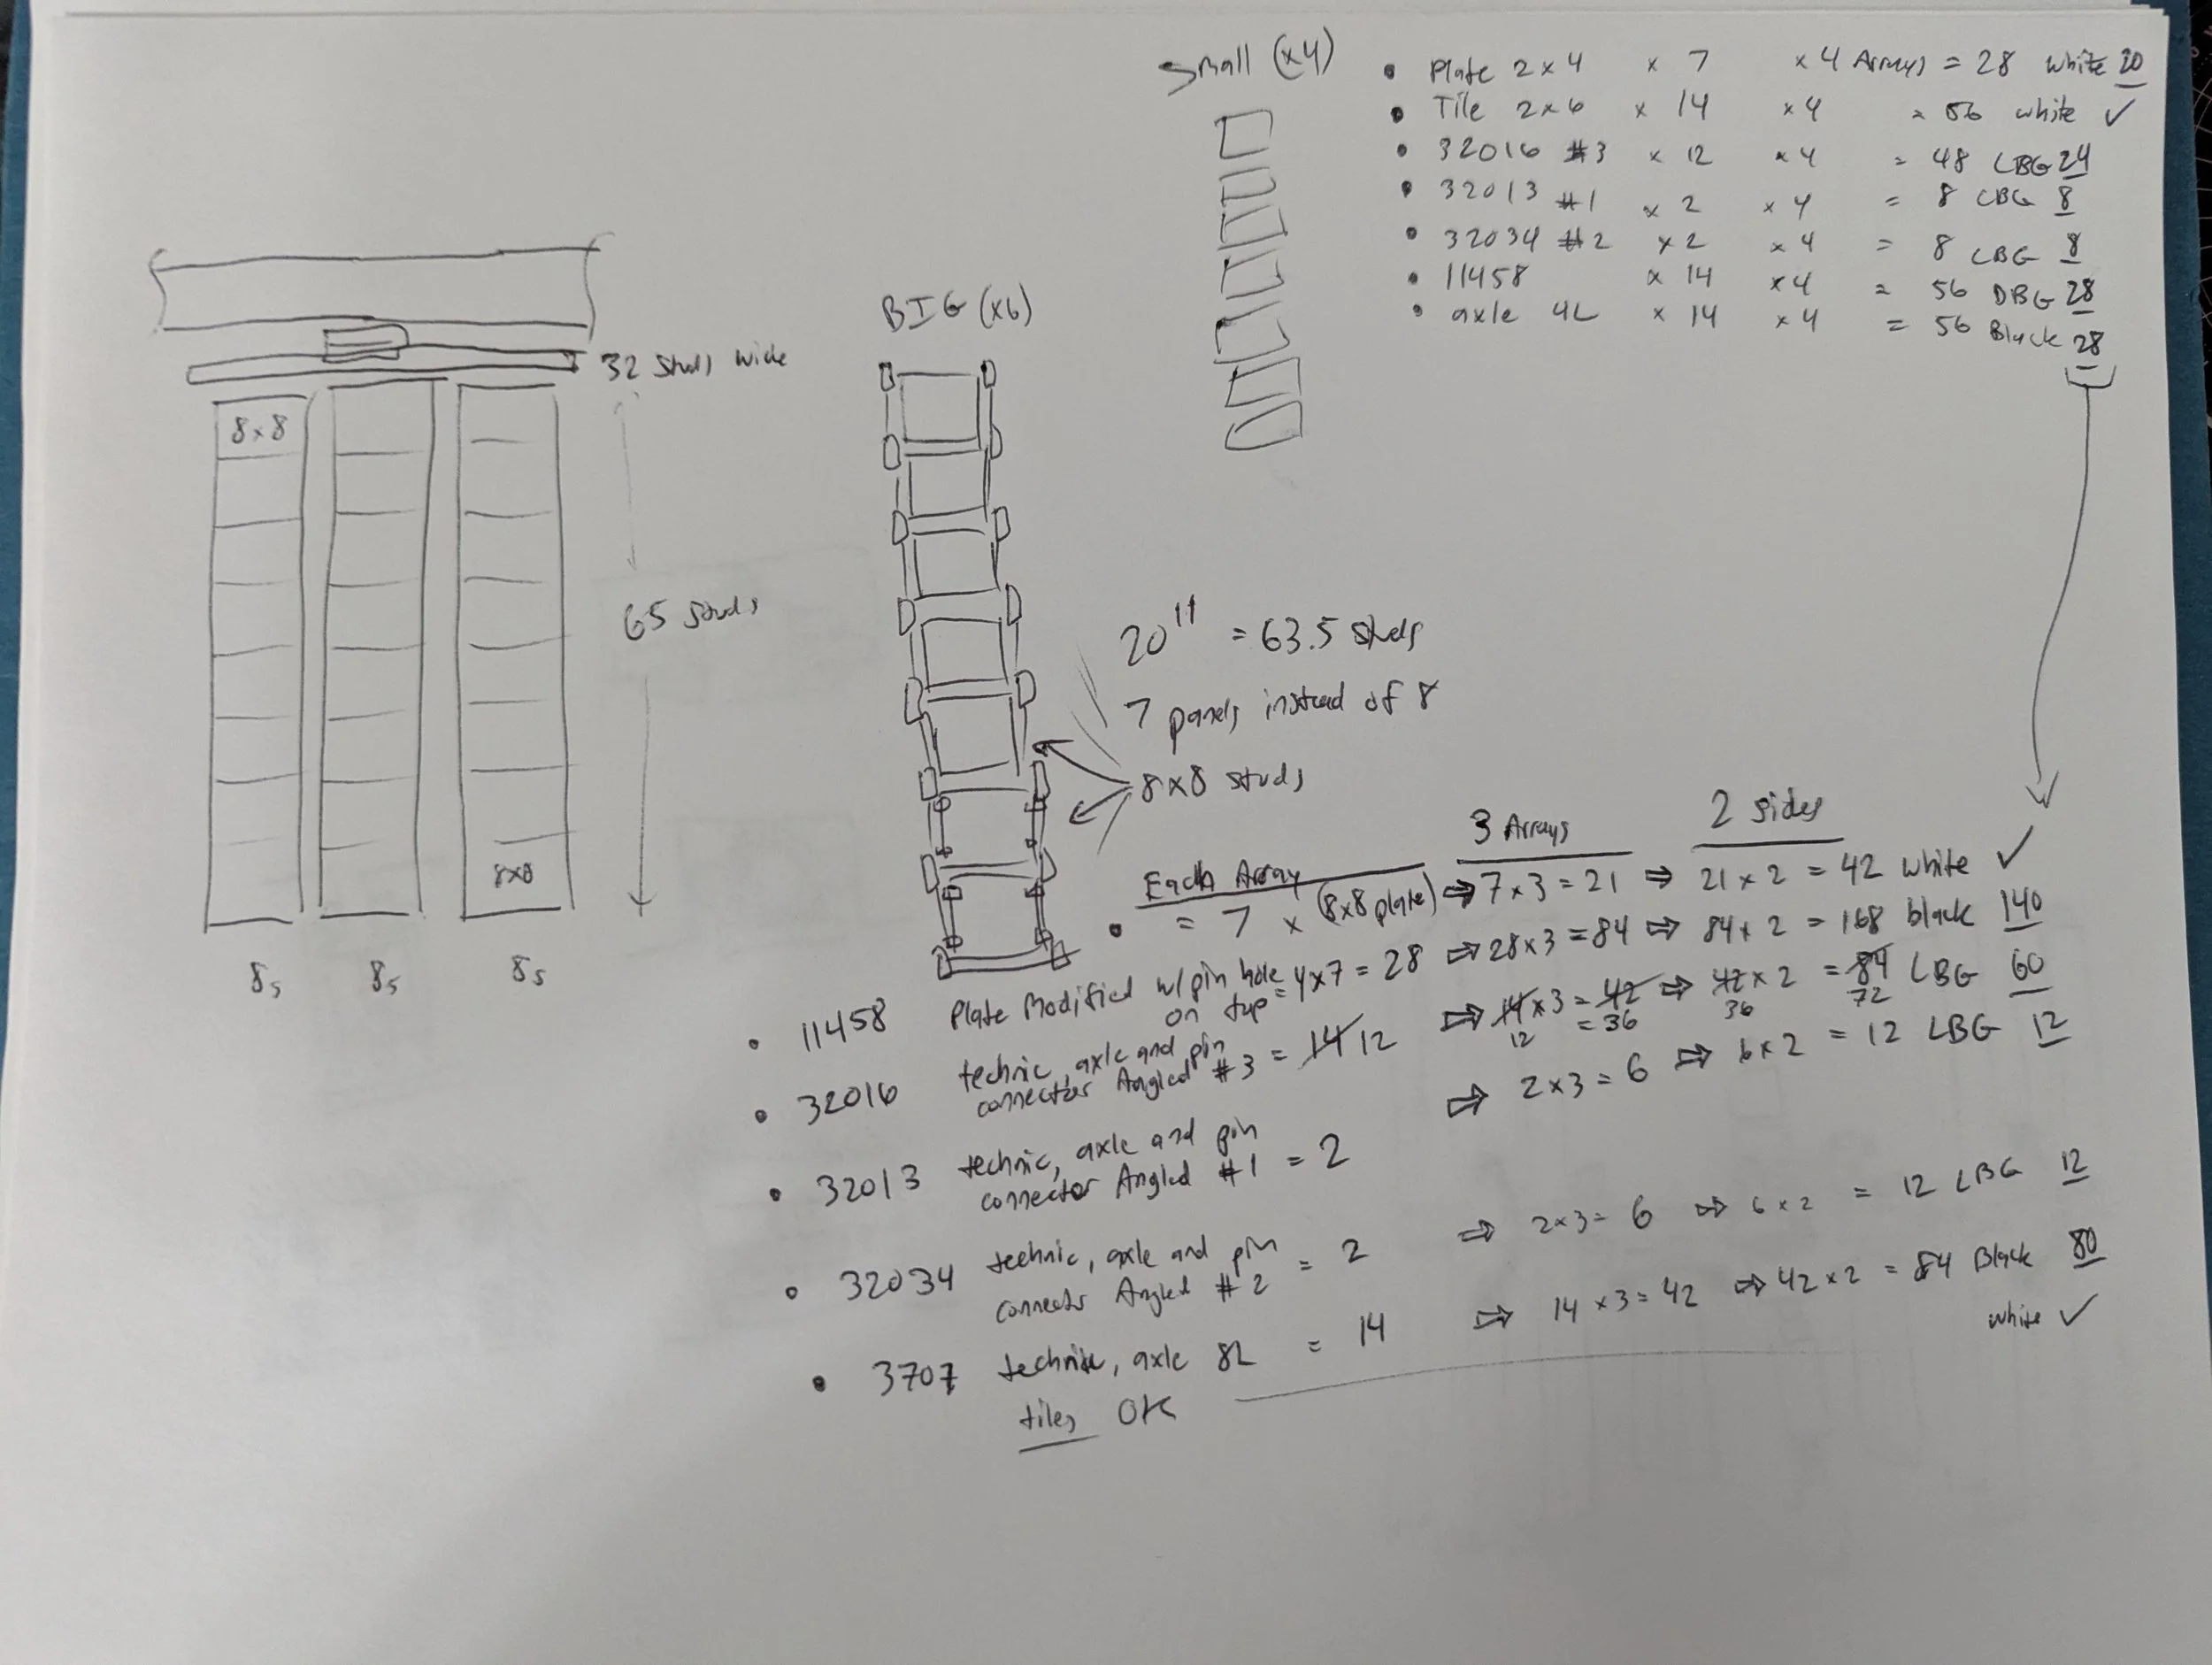 Small (x4)
• Plate 2x4 x 7 x 4 Arrays = 28 white 20
• Tile 2x6 x 14 x 4 = 56 white ✓
• 32016 #3 x 12 x 4 = 48 LBG 24
• 32013 #1 x 2 x 4 = 8 LBG 8
• 32034 #2 x 2 x 4 = 8 LBG 8
• 11458 x 14 x 4 = 56 DBG 28
• axle 4L x 14 x 4 = 56 Black 28
BIG (x6)
32 studs wide
8x8
65 studs
8x8
8s 8s 8s
20" = 63.5 studs
7 panels instead of 8
8x8 studs
Each Array 3 Arrays 2 sides
• = 7 x (8x8 plate) ⇒ 7x3 = 21 ⇒ 21x2 = 42 white ✓
• 11458 Plate Modified w/pin hole
on top = 4x7 = 28 ⇒ 28x3 = 84 ⇒ 84x2 = 168 black 140
• 32016 technic, axle and pin
connector Angled #3 = 14 12 ⇒ 14x3 = 42 ⇒ 42x2 = 84 LBG 60
12 = 36 36 72
• 32013 technic, axle and pin
connector Angled #1 = 2 ⇒ 2x3 = 6 ⇒ 6x2 = 12 LBG 12
• 32034 technic, axle and pin
connects Angled #2 = 2 ⇒ 2x3 = 6 ⇒ 6x2 = 12 LBG 12
• 3707 technic, axle 8L = 14 ⇒ 14x3 = 42 ⇒ 42x2 = 84 Black 80
tiles OK white ✓